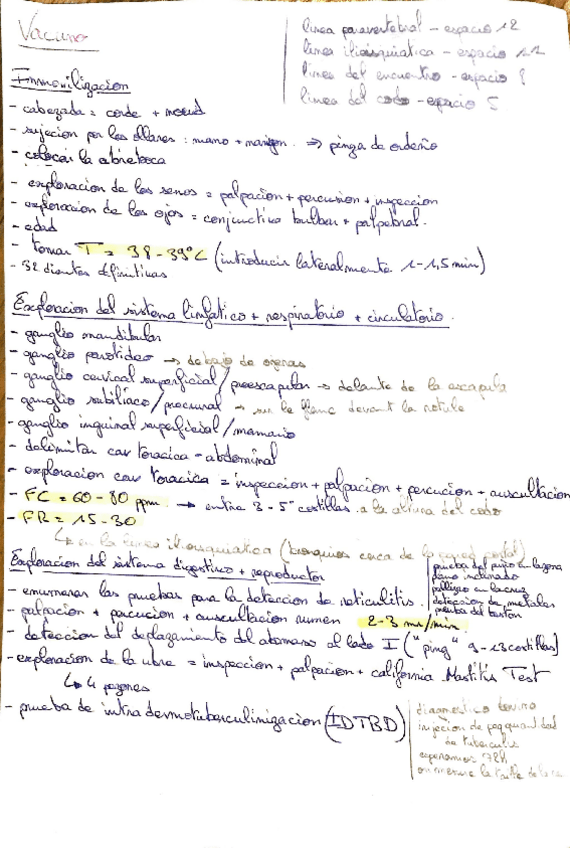 Vacuno
linea paravertebral - espacio 12
linea ilioisquiatica - espacio 11
linea del encuentro - espacio 8
linea del codo - espacio 5
Inmovilizacion
- cabezada = corde +
- sujecion por los ollares : mano + => pinza de ordeño
- colocar la abreboca
- exploracion de los senos = palpacion + percusion + inspeccion
- exploracion de los ojos = conjunctiva bulbar + palpebral.
- edad
- tomar T = 38 - 39°C (introducir lateralmente 1 - 1,5 min)
- 32 dientes definitivas
Exploracion del sistema linfatico + respiratorio + circulatorio.
- ganglio mandibular
- ganglio parotideo -> debajo de orejas
- ganglio cervical superficial / preescapular -> delante de la escapula
- ganglio subiliaco / precrural -> sur le flanc devant la rotule
- ganglio inguinal superficial / mamario
- delimitar cav toracica - abdominal
- exploracion cav toracica = inspeccion + palpacion + percucion + auscultacion
- FC = 60 - 80 ppm -> entre 3 - 5 costillas a la altura del codo
- FR = 15 - 30
en la linea ilioisquiatica (bronquios cerca de la pared costal)
Exploracion del sistema digestivo + reproductor
prueba del puño en la zona
plano inclinado
pellizco en la cruz
deteccion de metales
prueba del baston
- enumerar las pruebas para la deteccion de reticulitis.
- palpacion + percucion + auscultacion rumen 2-3 mv/min.
- deteccion del desplazamiento del abomaso al lado I ("ping" 9 - 13 costillas)
- exploracion de la ubre = inspeccion + palpacion + california Mastitis Test
4 pezones
- prueba de intradermotuberculinizacion (IDTBD)
diagnostico bovino
injeccion de peq quantidad
de tuberculine
esperamos 72h
on mesure la taille de la